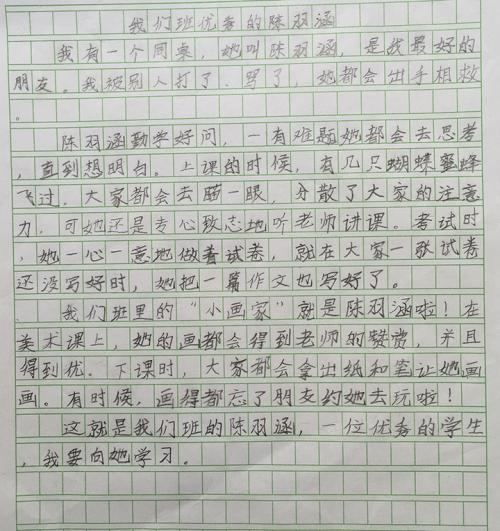 我们班优秀的陈羽涵
我有一个同桌，她叫陈羽涵，是我最好的
朋友。我被别人打了、骂了，她都会出手相救
。
陈羽涵勤学好问，一有难题她都会去思考
，直到想明白。上课的时候，有几只蝴蝶蜜蜂
飞过，大家都会去瞄一眼，分散了大家的注意
力，可她还是专心致志地听老师讲课。考试时
，她一心一意地做着试卷，就在大家一张试卷
还没写好时，她把一篇作文也写好了。
我们班里的“小画家”就是陈羽涵啦！在
美术课上，她的画都会得到老师的赞赏，并且
得到优。下课时，大家都会拿出纸和笔让她画
画。有时候，画得都忘了朋友约她去玩啦！
这就是我们班的陈羽涵，一位优秀的学生
，我要向她学习。